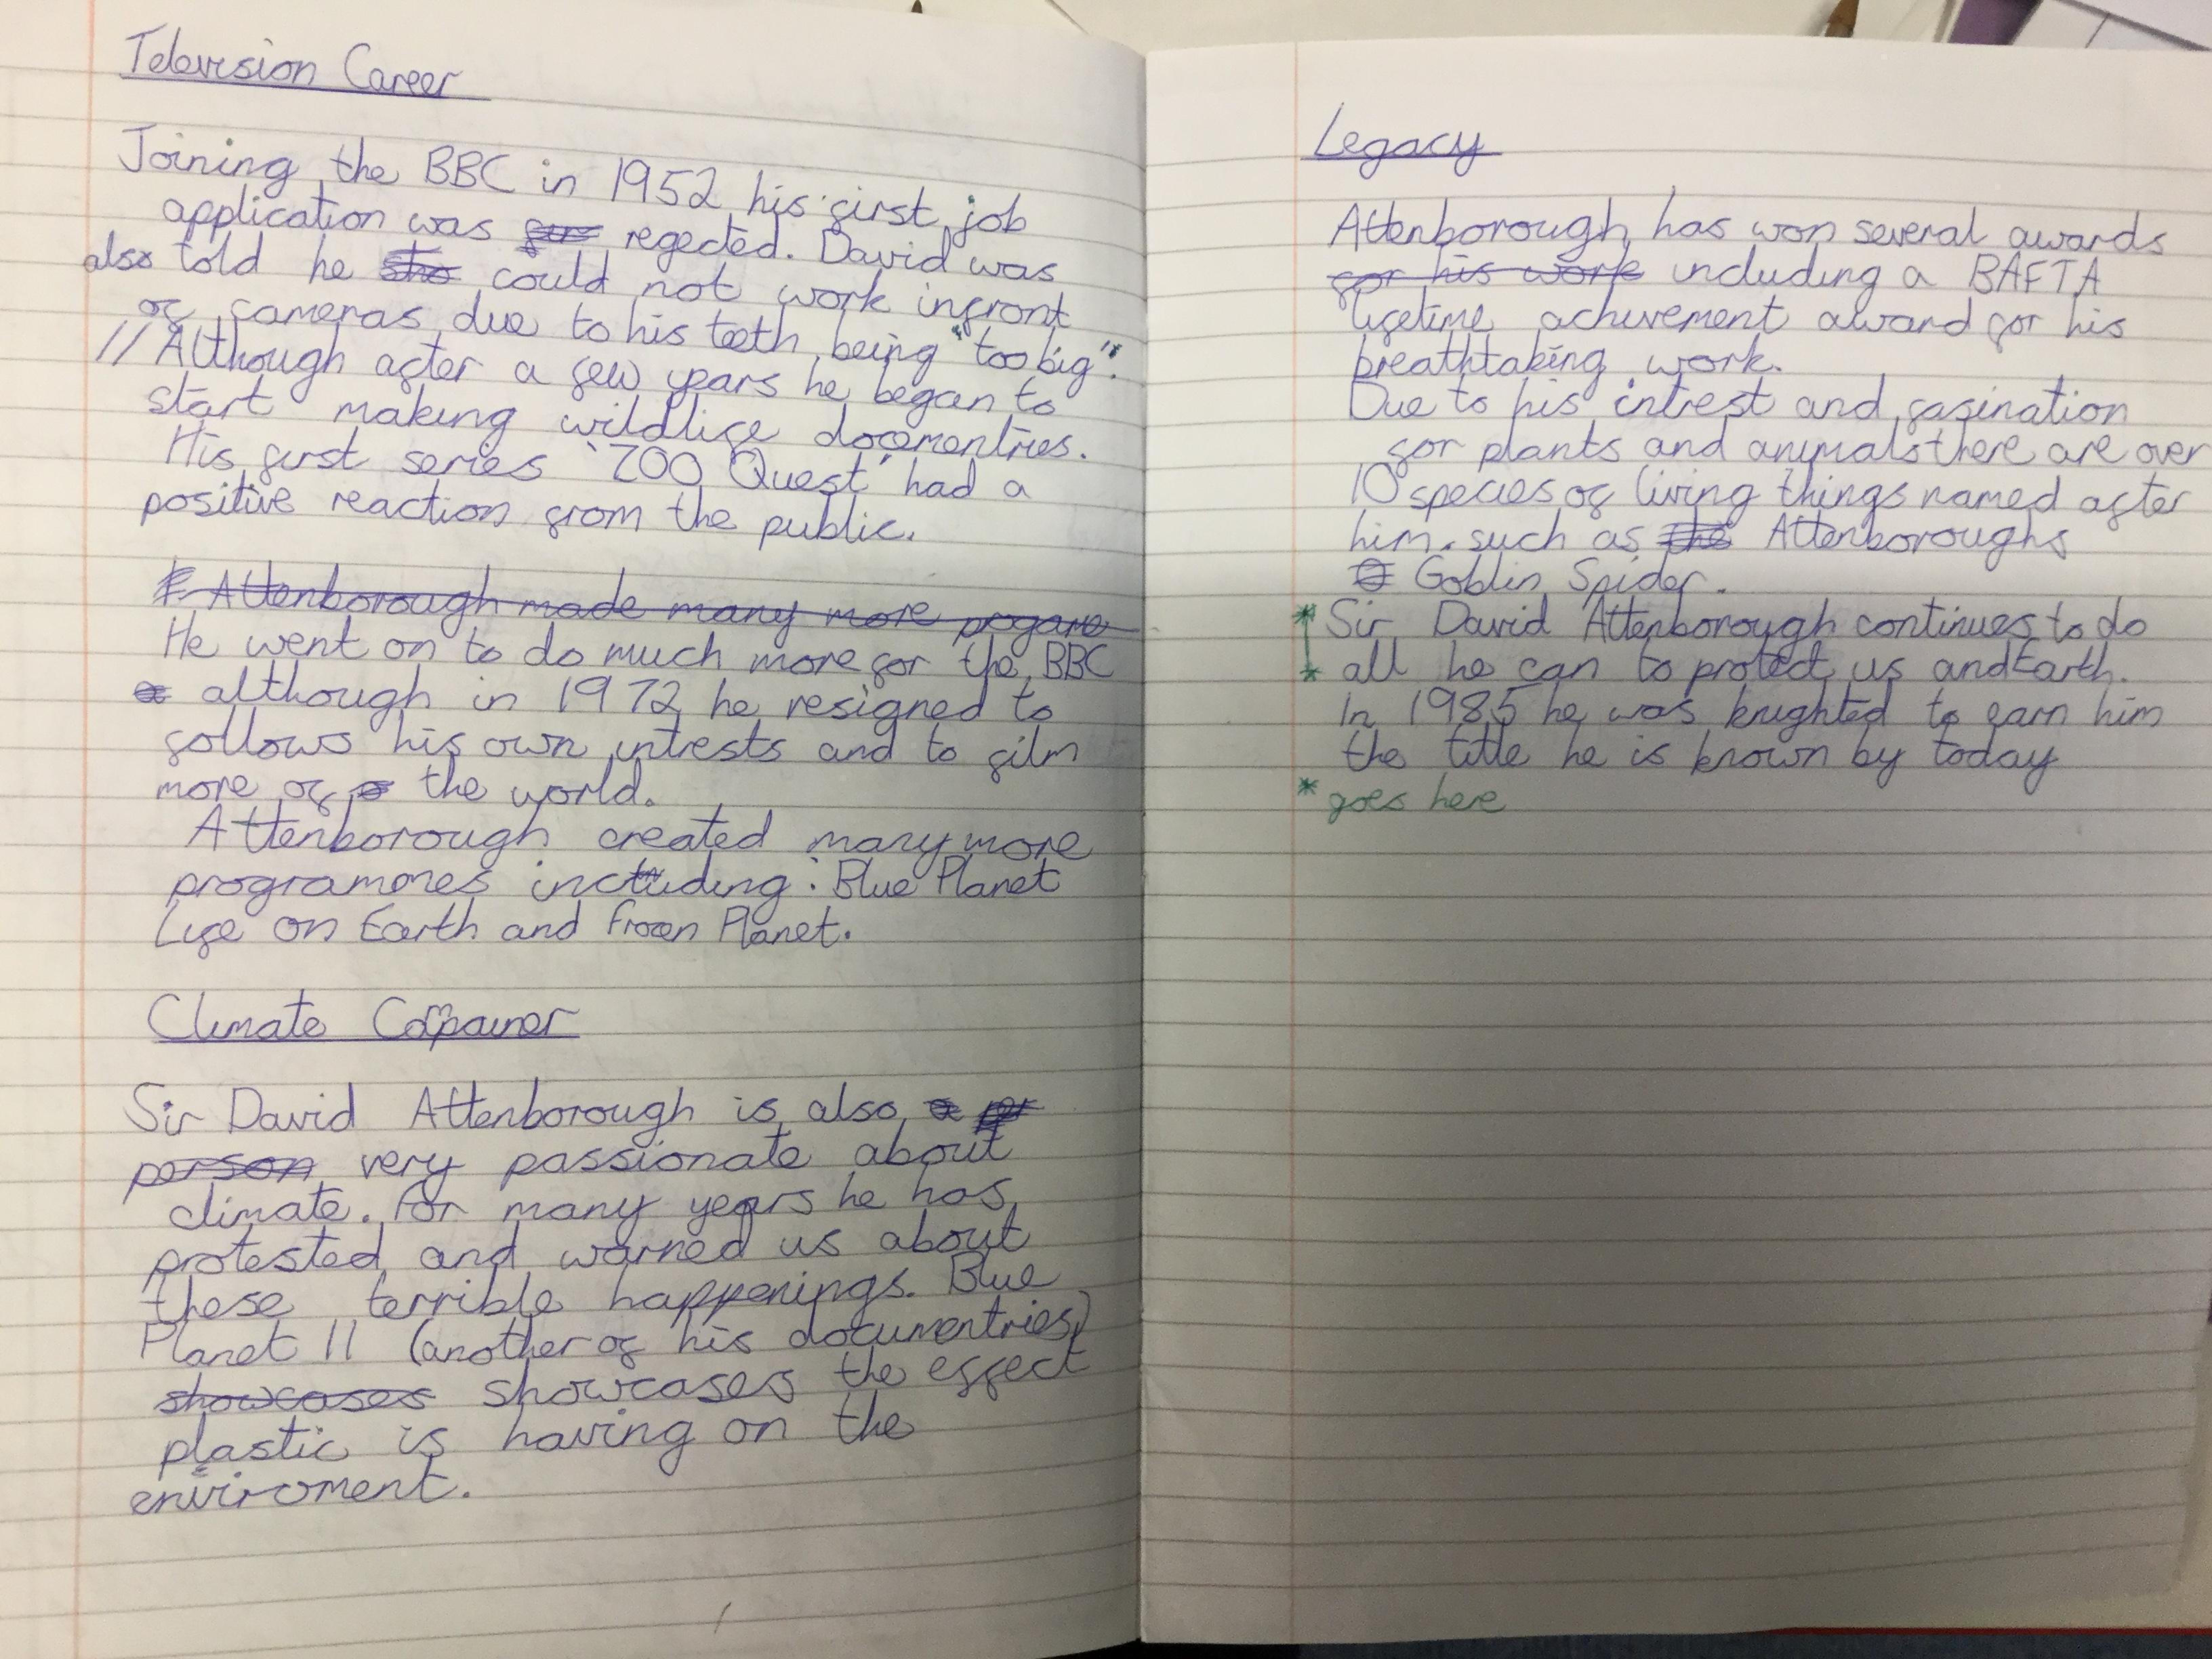 Television Career
Joining the BBC in 1952 his first job
application was regected. David was
also told he could not work infront
of cameras due to his teeth being "too big".
// Although after a few years he began to
start making wildlife documentries.
His first series 'ZOO Quest' had a
positive reaction from the public.
Attenborough made many more
He went on to do much more for the BBC
although in 1972 he resigned to
follows his own intrests and to film
more of the world.
Attenborough created many more
programmes including: Blue Planet
Life on Earth and Frozen Planet.
Climate
Sir David Attenborough is also
person very passionate about
climate. For many years he has
protested and warned us about
these terrible happenings. Blue
Planet II (another of his documentries)
showcases showcases the effect
plastic is having on the
enviroment.
Legacy
Attenborough has won several awards
for his work including a BAFTA
lifetime achivement award for his
breathtaking work.
Due to his intrest and fasination
for plants and animals there are over
10 species of living things named after
him. such as the Attenboroughs
Goblin Spider.
* Sir David Attenborough continues to do
* all he can to protect us and Earth.
In 1985 he was knighted to earn him
the title he is known by today
* goes here